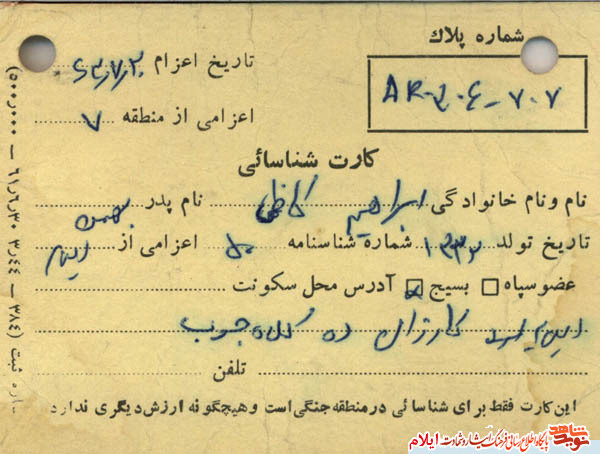 شماره پلاك
AR-206-707
تاریخ اعزام ۶۳/۷/۲۰
اعزامی از منطقه ۷
کارت شناسائی
نام و نام خانوادگی ابراهیم کاظمی نام پدر
تاریخ تولد ۱۳۳۲ شماره شناسنامه اعزامی از ایلام
عضو سپاه بسیج آدرس محل سکونت
کارزان ده کلاه چوب
تلفن
این کارت فقط برای شناسائی در منطقه جنگی است و هیچگونه ارزش دیگری ندارد
(۵۰۰ر۰۰۰ — ۶۱ر۶ر۳۰ ۳ر۴۴ — ۳۸۴) ثبت
نوید شاهد
پایگاه اطلاع رسانی فرهنگ ایثار و شهادت ایلام